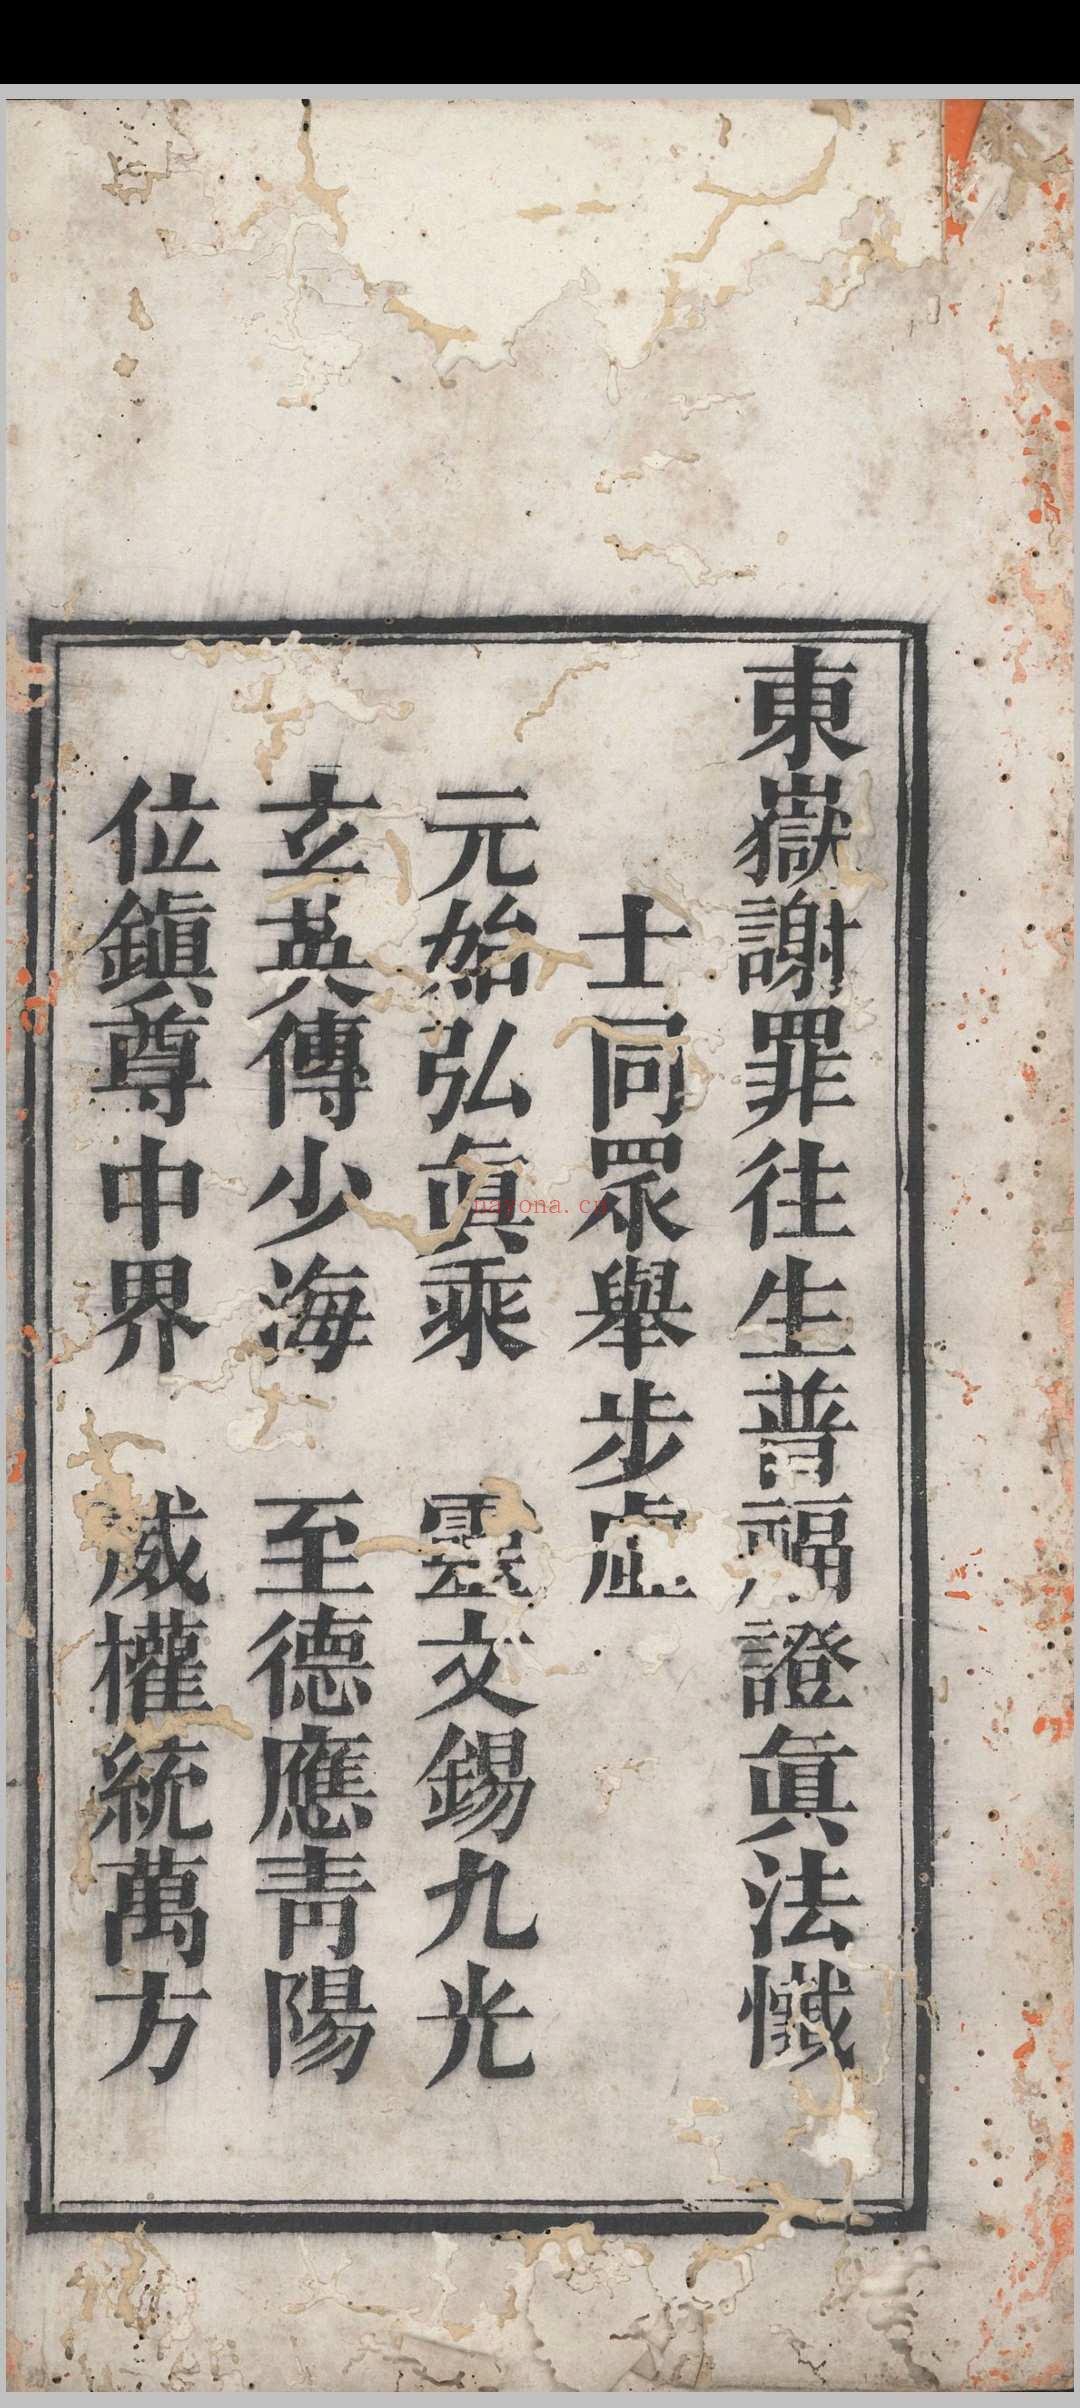 東嶽謝罪往生普福證眞法懺
士同眾舉步虛
元始弘眞乘　靈文錫九光
玄英傳少海　至德應靑陽
位鎭尊中界　威權統萬方
nayona.cn